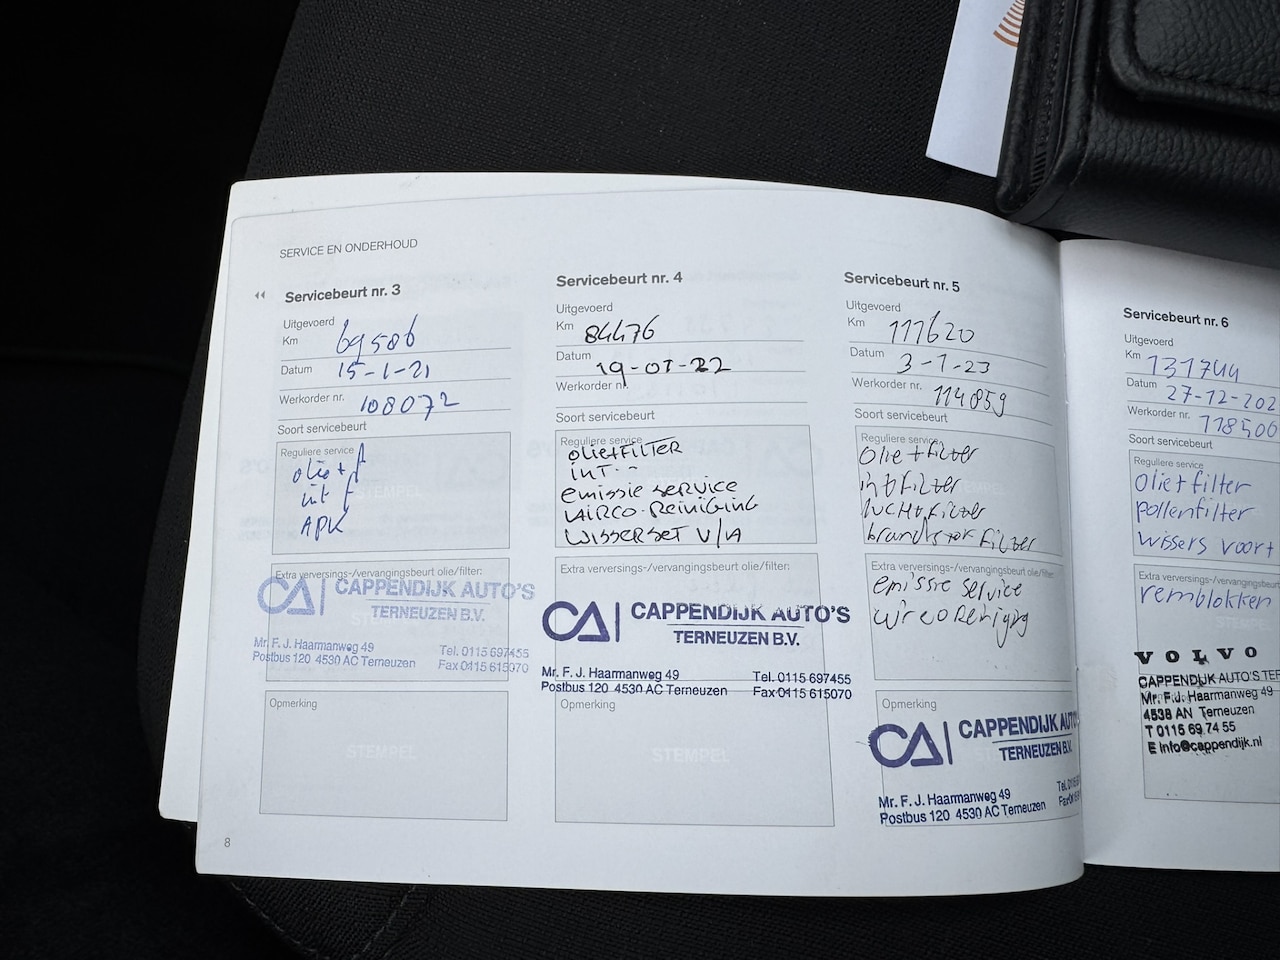 SERVICE EN ONDERHOUD
Servicebeurt nr. 3
Uitgevoerd
Km 69506
Datum 15-1-21
Werkorder nr. 108072
Soort servicebeurt
Reguliere service
olie + f
int f
APK
Extra verversings-/vervangingsbeurt olie/filter:
CA CAPPENDIJK AUTO'S
TERNEUZEN B.V.
Mr. F. J. Haarmanweg 49 Tel. 0115 697455
Postbus 120 4530 AC Terneuzen Fax 0115 615070
Opmerking
STEMPEL
8
Servicebeurt nr. 4
Uitgevoerd
Km 84476
Datum 19-01-22
Werkorder nr.
Soort servicebeurt
Reguliere service
OLIE+FILTER
INT..
EMISSIE SERVICE
AIRCO-REINIGING
WISSERSET V/A
Extra verversings-/vervangingsbeurt olie/filter:
CA CAPPENDIJK AUTO'S
TERNEUZEN B.V.
Mr. F. J. Haarmanweg 49 Tel. 0115 697455
Postbus 120 4530 AC Terneuzen Fax 0115 615070
Opmerking
STEMPEL
Servicebeurt nr. 5
Uitgevoerd
Km 111620
Datum 3-1-23
Werkorder nr. 114859
Soort servicebeurt
Reguliere service
Olie + filter
int filter
lucht filter
brandstof filter
Extra verversings-/vervangingsbeurt olie/filter:
emissie service
airco Reiniging
Opmerking
CA CAPPENDIJK AUTO'S
TERNEUZEN B.V.
Mr. F. J. Haarmanweg 49 Tel.
Postbus 120 4530 AC Terneuzen
Servicebeurt nr. 6
Uitgevoerd
Km 131744
Datum 27-12-202
Werkorder nr. 118506
Soort servicebeurt
Reguliere service
Olie + filter
pollenfilter
wissers voor +
Extra verversings-/vervangingsbeurt
remblokken
VOLVO
CAPPENDIJK AUTO'S TER
Mr. F.J. Haarmanweg 49
4538 AN Terneuzen
T 0115 69 74 55
E info@cappendijk.nl